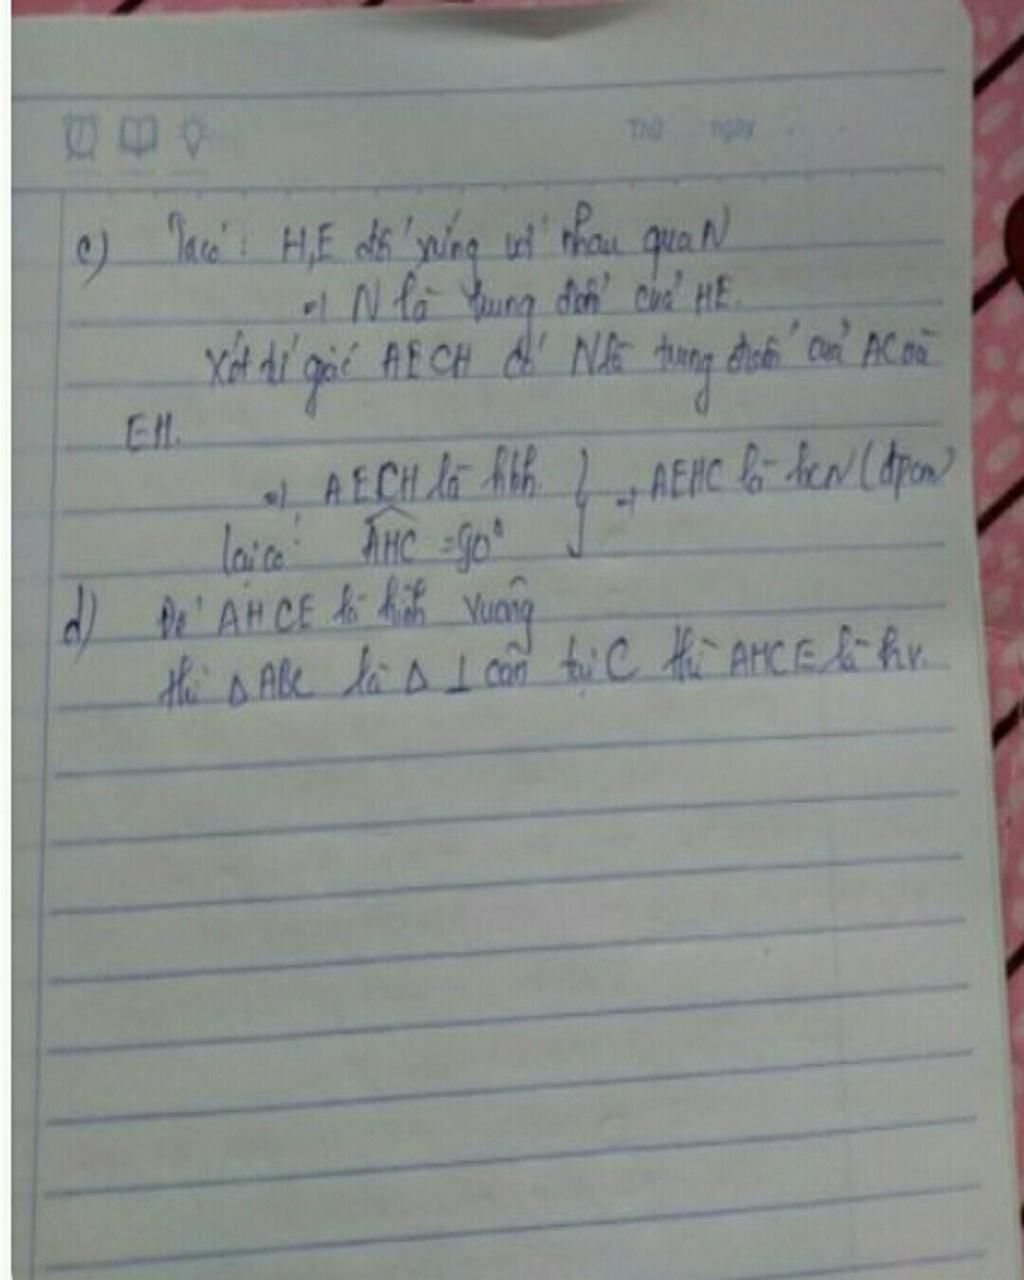 Thứ ngày
c) Ta có: H,E đối xứng với nhau qua N
=> N là trung điểm của HE.
Xét tứ giác AECH có N là trung điểm của AC và
EH.
=> AECH là hbh. } => AEHC là hcN (đpcm)
lại có: AHC = 90°
d) Để AHCE là hình vuông
thì Δ ABC là Δ ⊥ cân tại C thì AHCE là h.v.